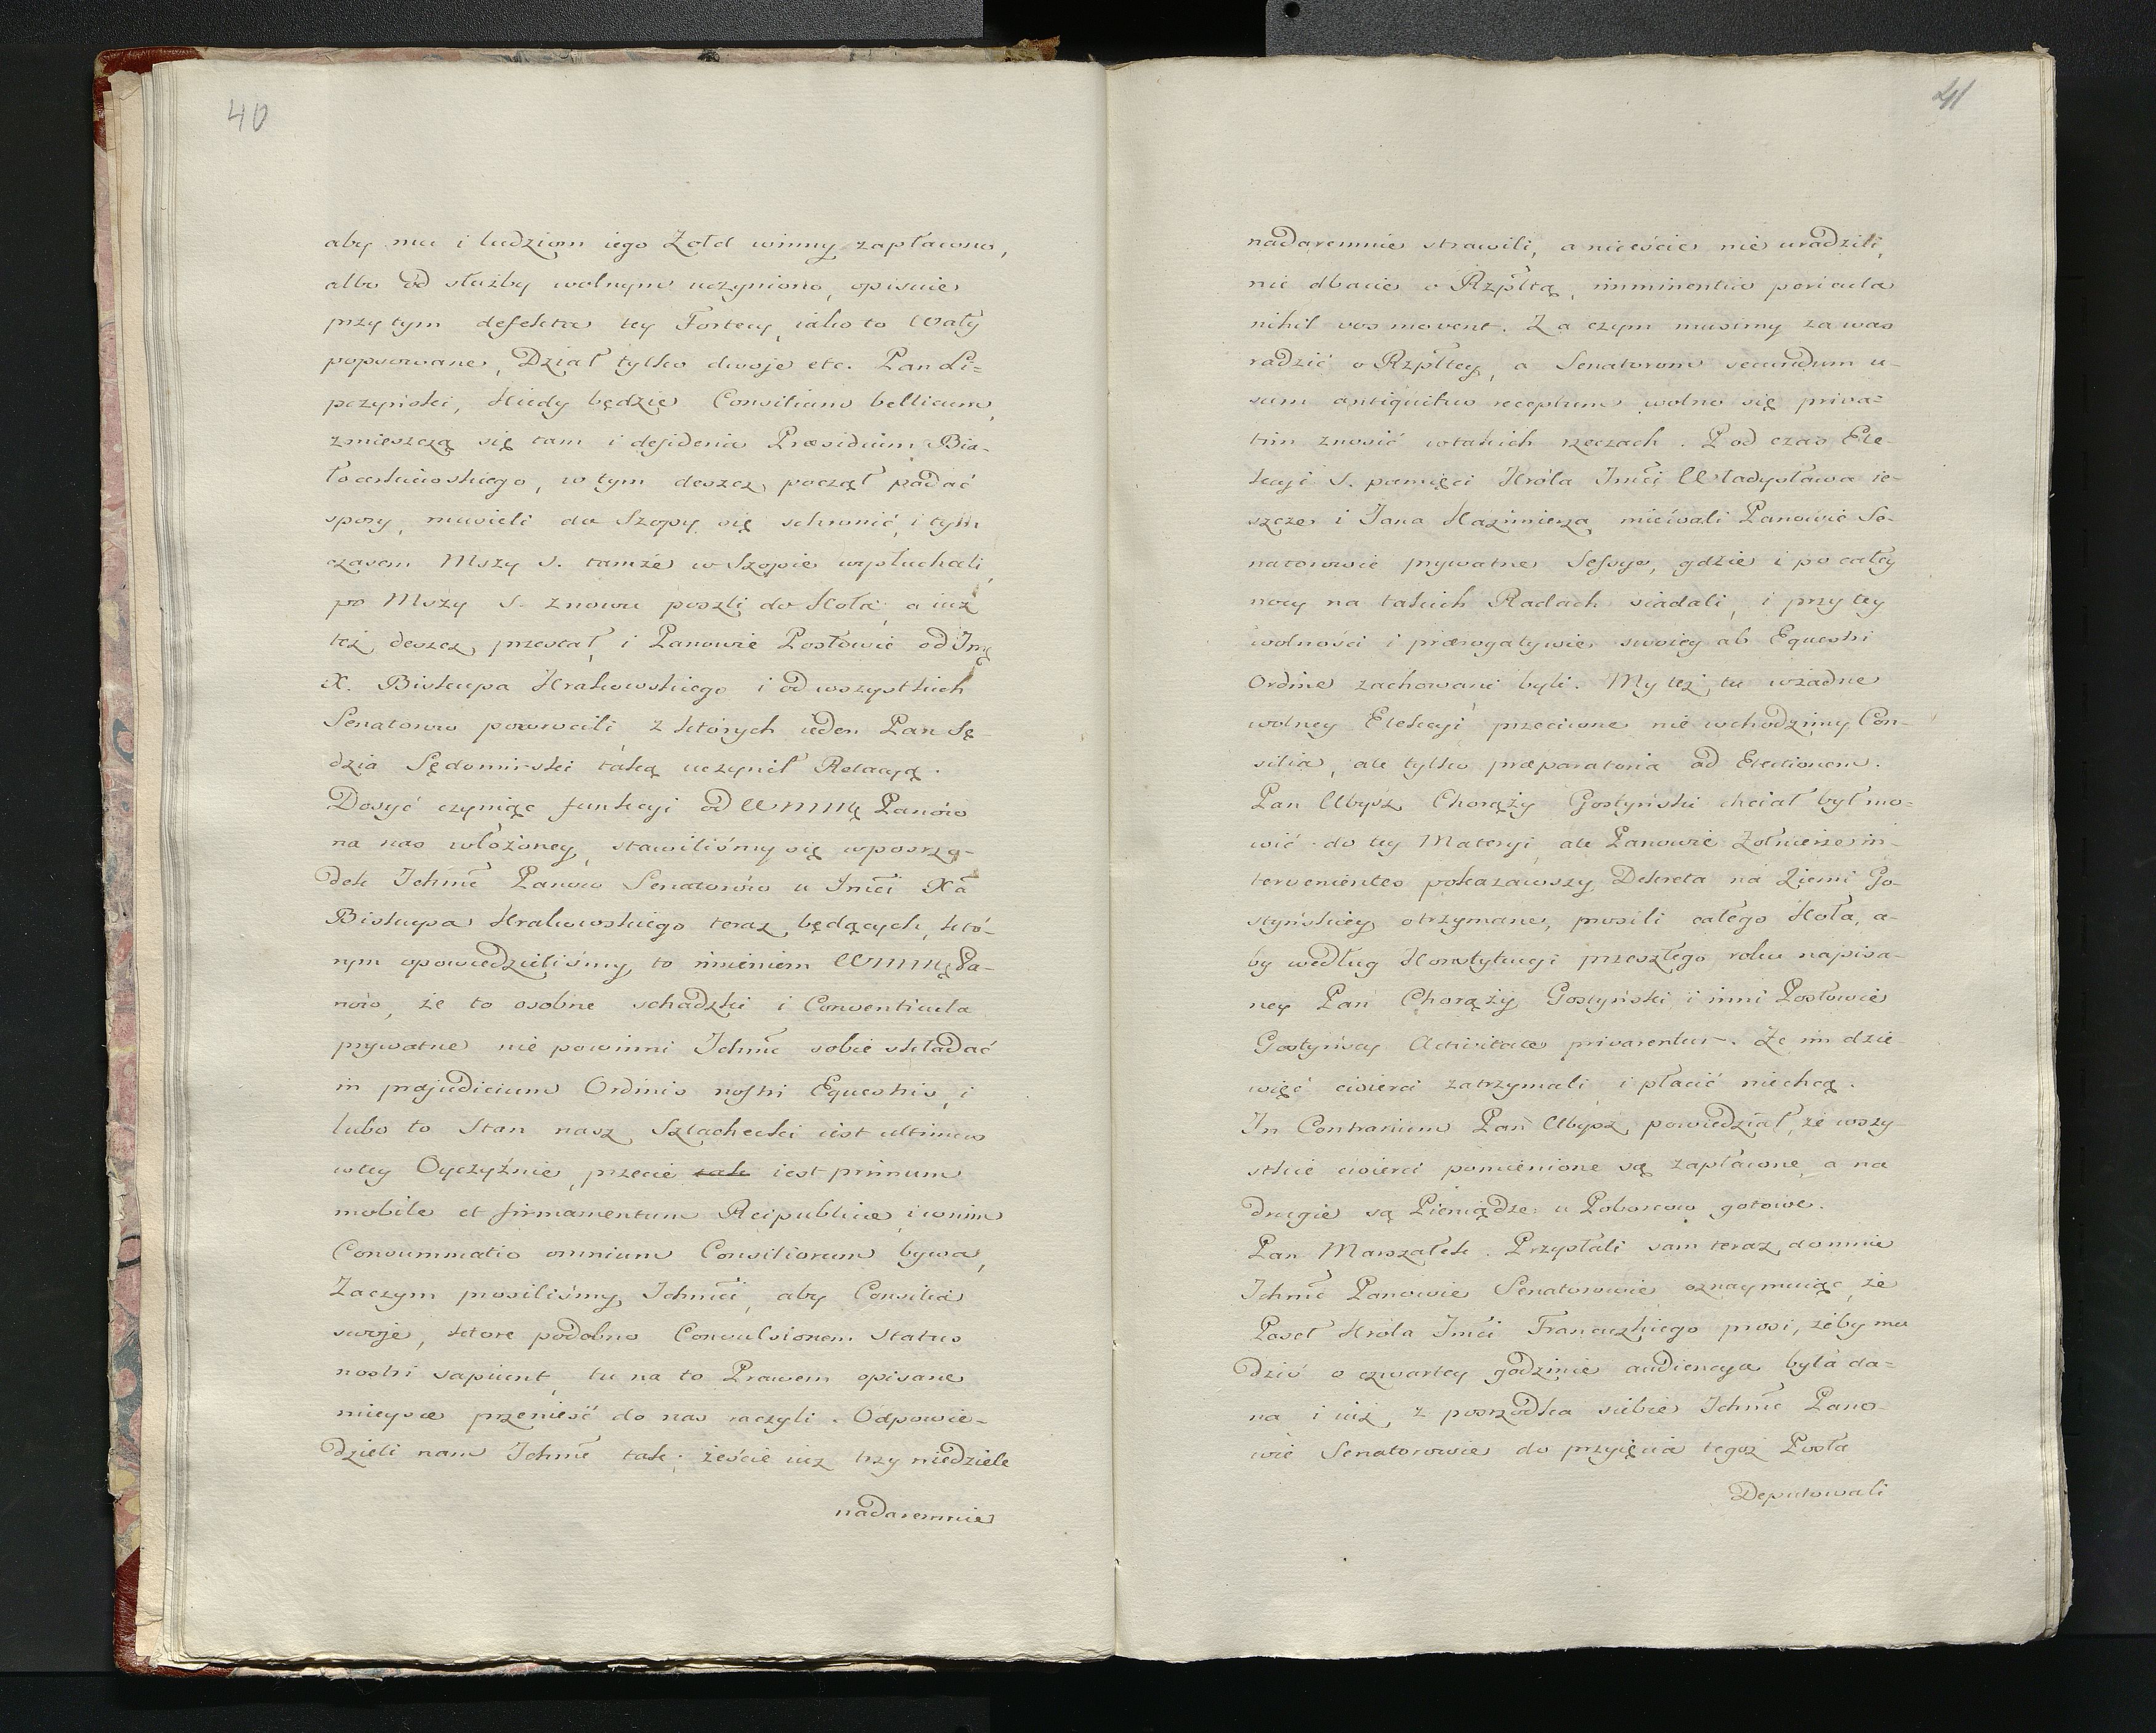 40
aby mu i ludziom iego Żołd winny zapłacono,
albo od służby wolnym uczyniono, opisuie
przytym defekta tey Fortecy, iako to Wały
popsowane, Dział tylko dwoje etc. Pan Li=
pczyński, Kiedy będzie Consilium bellicum,
zmieszczą się tam i dejideria Præsidium Bia-
łocerkiewskiego, w tym deszcz począł padać
spory, musieli do Szopy się schronić, i tym
czasem Mszy S. tamże w Szopie wysłuchali,
po Mszy S. znowu poszli do Koła, a iuż
też deszcz przestał, i Panowie Posłowie od Jmę
X. Biskupa Krakowskiego i od wszystkich
Senatorow powrocili, z których ieden Pan Sę-
dzia Sędomirski taką uczynił Relacyą.
Dosyć czyniąc funkcyi od WMMę Panów
na nas włożoney, stawiliśmy się wposrzo-
dek Ichmć Panow Senatorów u Jmći Xa
Biskupa Krakowskiego teraz będących, któ-
rym opowiedzieliśmy, to imieniem WMMę Pa-
nów, że to osobne schadzki i Conventicula
prywatne nie powinni Ichmć sobie składać
in præjudicium Ordinis nostri Equestris, i
lubo to Stan nasz Szlachecki iest ultimus
wtey Oyczyźnie, przecie tak iest primum
mobile et firmamentum Reipublicæ, i wnim
Consummatio omnium Consiliorum bywa,
Zaczym prosiliśmy, Ichmći, aby Consilia
swoje, ktore podobno Convulsionem Status
nostri sapiunt, tu na to Prawem opisane
mieysce przenieść do nas raczyli. Odpowie-
dzieli nam Ichmć tak: żeście iuż trzy niedziele
nadaremnie
41
nadaremnie strawili, a nieście nie uradzili,
nic dbacie o Rzpltą, imminentia pericula
nihil vos movent. Zaczym musimy za was
radzić o Rzpltey, a Senatorom secundum u-
sum antiquitus receptum wolno się priva=
tim znosić wtakich rzeczach. Pod czas Ele-
kcyi S. pamięci Króla Jmći Władysława ie-
szcze i Jana Kazimierza miewali Panowie Se-
natorowie prywatne Sessye, gdzie i po całey
nocy na takich Radach siadali, i przy tey
wolności i prærogatywie swoiey ab Equestri
Ordine zachowani byli. My też tu wżadne
wolney Elekcyi przeciwne nie wchodzimy Con-
silia, ale tylko præparatoria ad Electionem.
Pan Ubysz Chorąży Gostyński chciał był mo=
wić do tey Materyi, ale Panowie Żołnierze in-
tervenientes pokazawszy Dekreta na Ziemi Go-
styńskiey otrzymane, prosili całego Koła, a-
by według Konstytucyi przeszłego roku napisa-
ney Pan Chorąży Gostyński i inni Posłowie
Gostyńscy Activitate privarentur. Że im dzie-
więć ćwierci zatrzymali i płacić niechcą.
In Contrarium Pan Ubysz powiedział, że wszy-
stkie cwierci pomienione są zapłacone, a na
drugie są Pieniądze u Poborcow gotowe.
Pan Marszałek. Przysłali sam teraz domnie
Ichmć Panowie Senatorowie oznaymuiąc, że
Poseł Króla Jmći Francuzkiego prosi, żeby mu
dziś o czwartey godzinie audiencya była da=
na i iuż z posrzodka siebie Ichmć Pano-
wie Senatorowie do przyięcia tegoż Posła
Deputowali